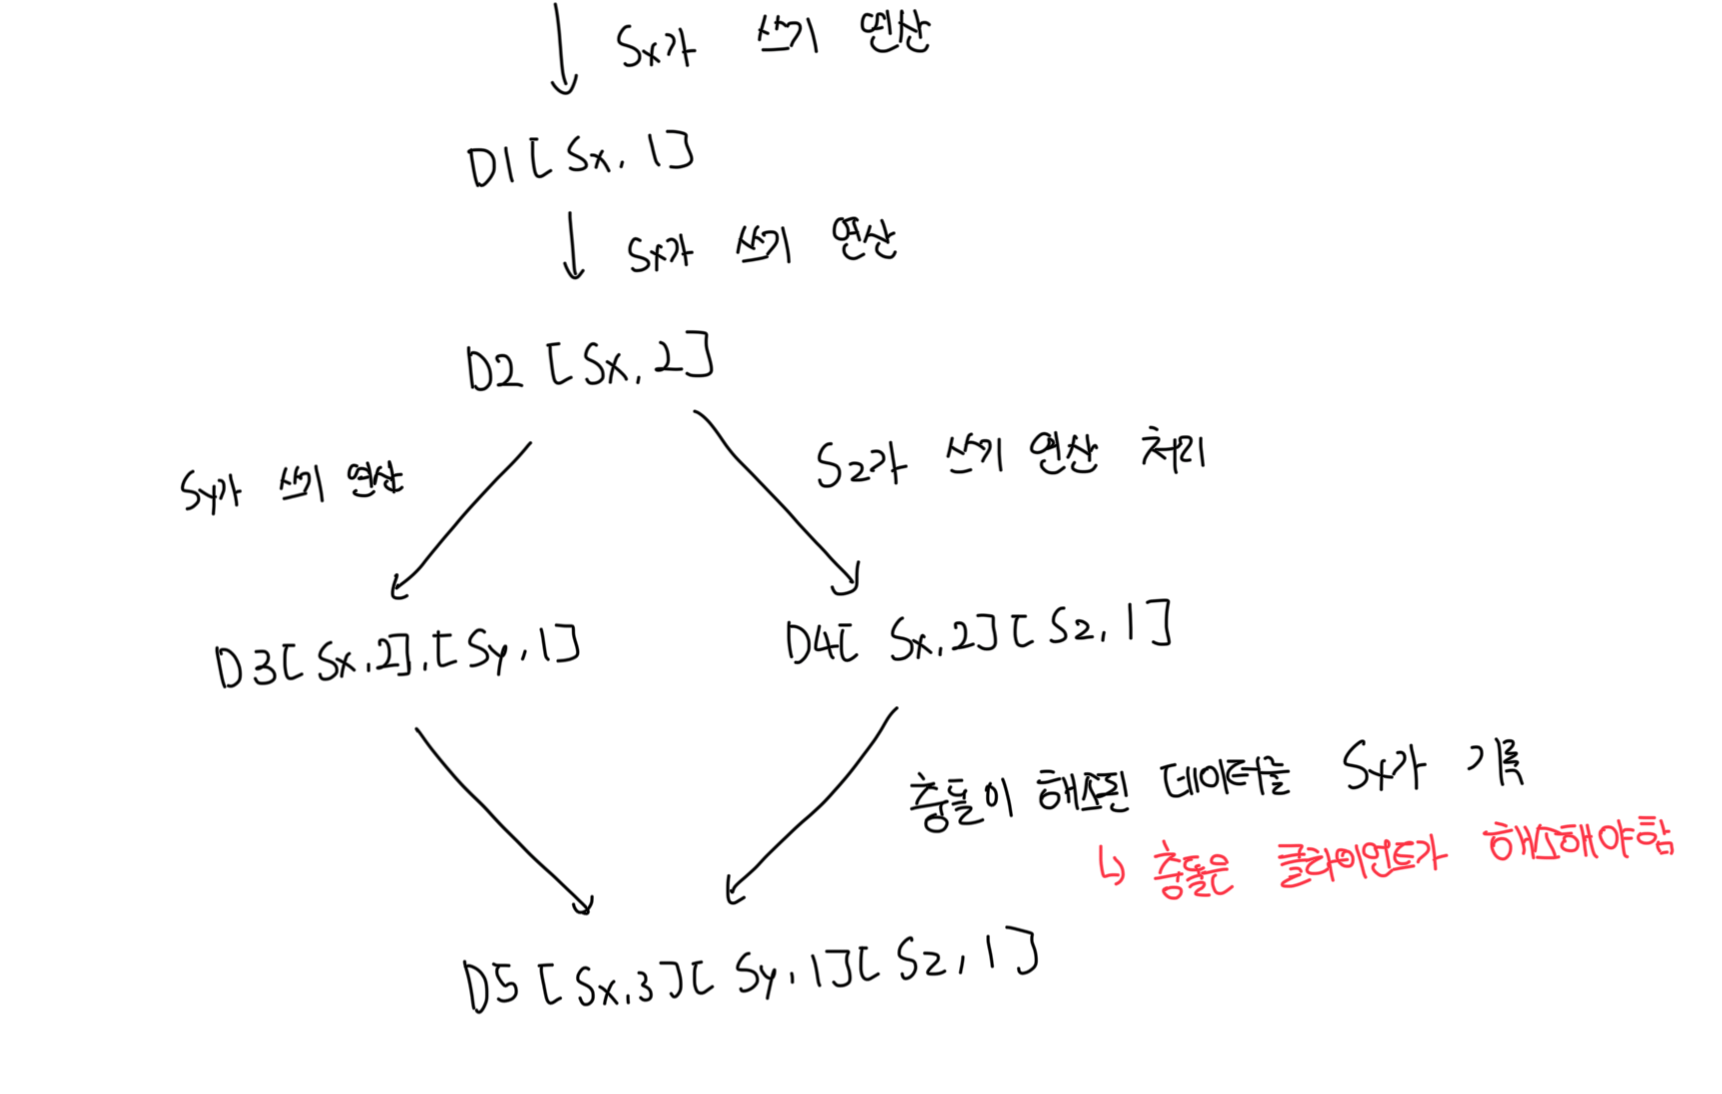 Sx가 쓰기 연산
D1[Sx, 1]
Sx가 쓰기 연산
D2 [Sx, 2]
Sy가 쓰기 연산
Sz가 쓰기 연산 처리
D3[Sx, 2], [Sy, 1]
D4[ Sx, 2][Sz, 1]
충돌이 해소된 데이터를 Sx가 기록
↳ 충돌은 클라이언트가 해소해야함
D5 [Sx, 3][Sy, 1][Sz, 1]